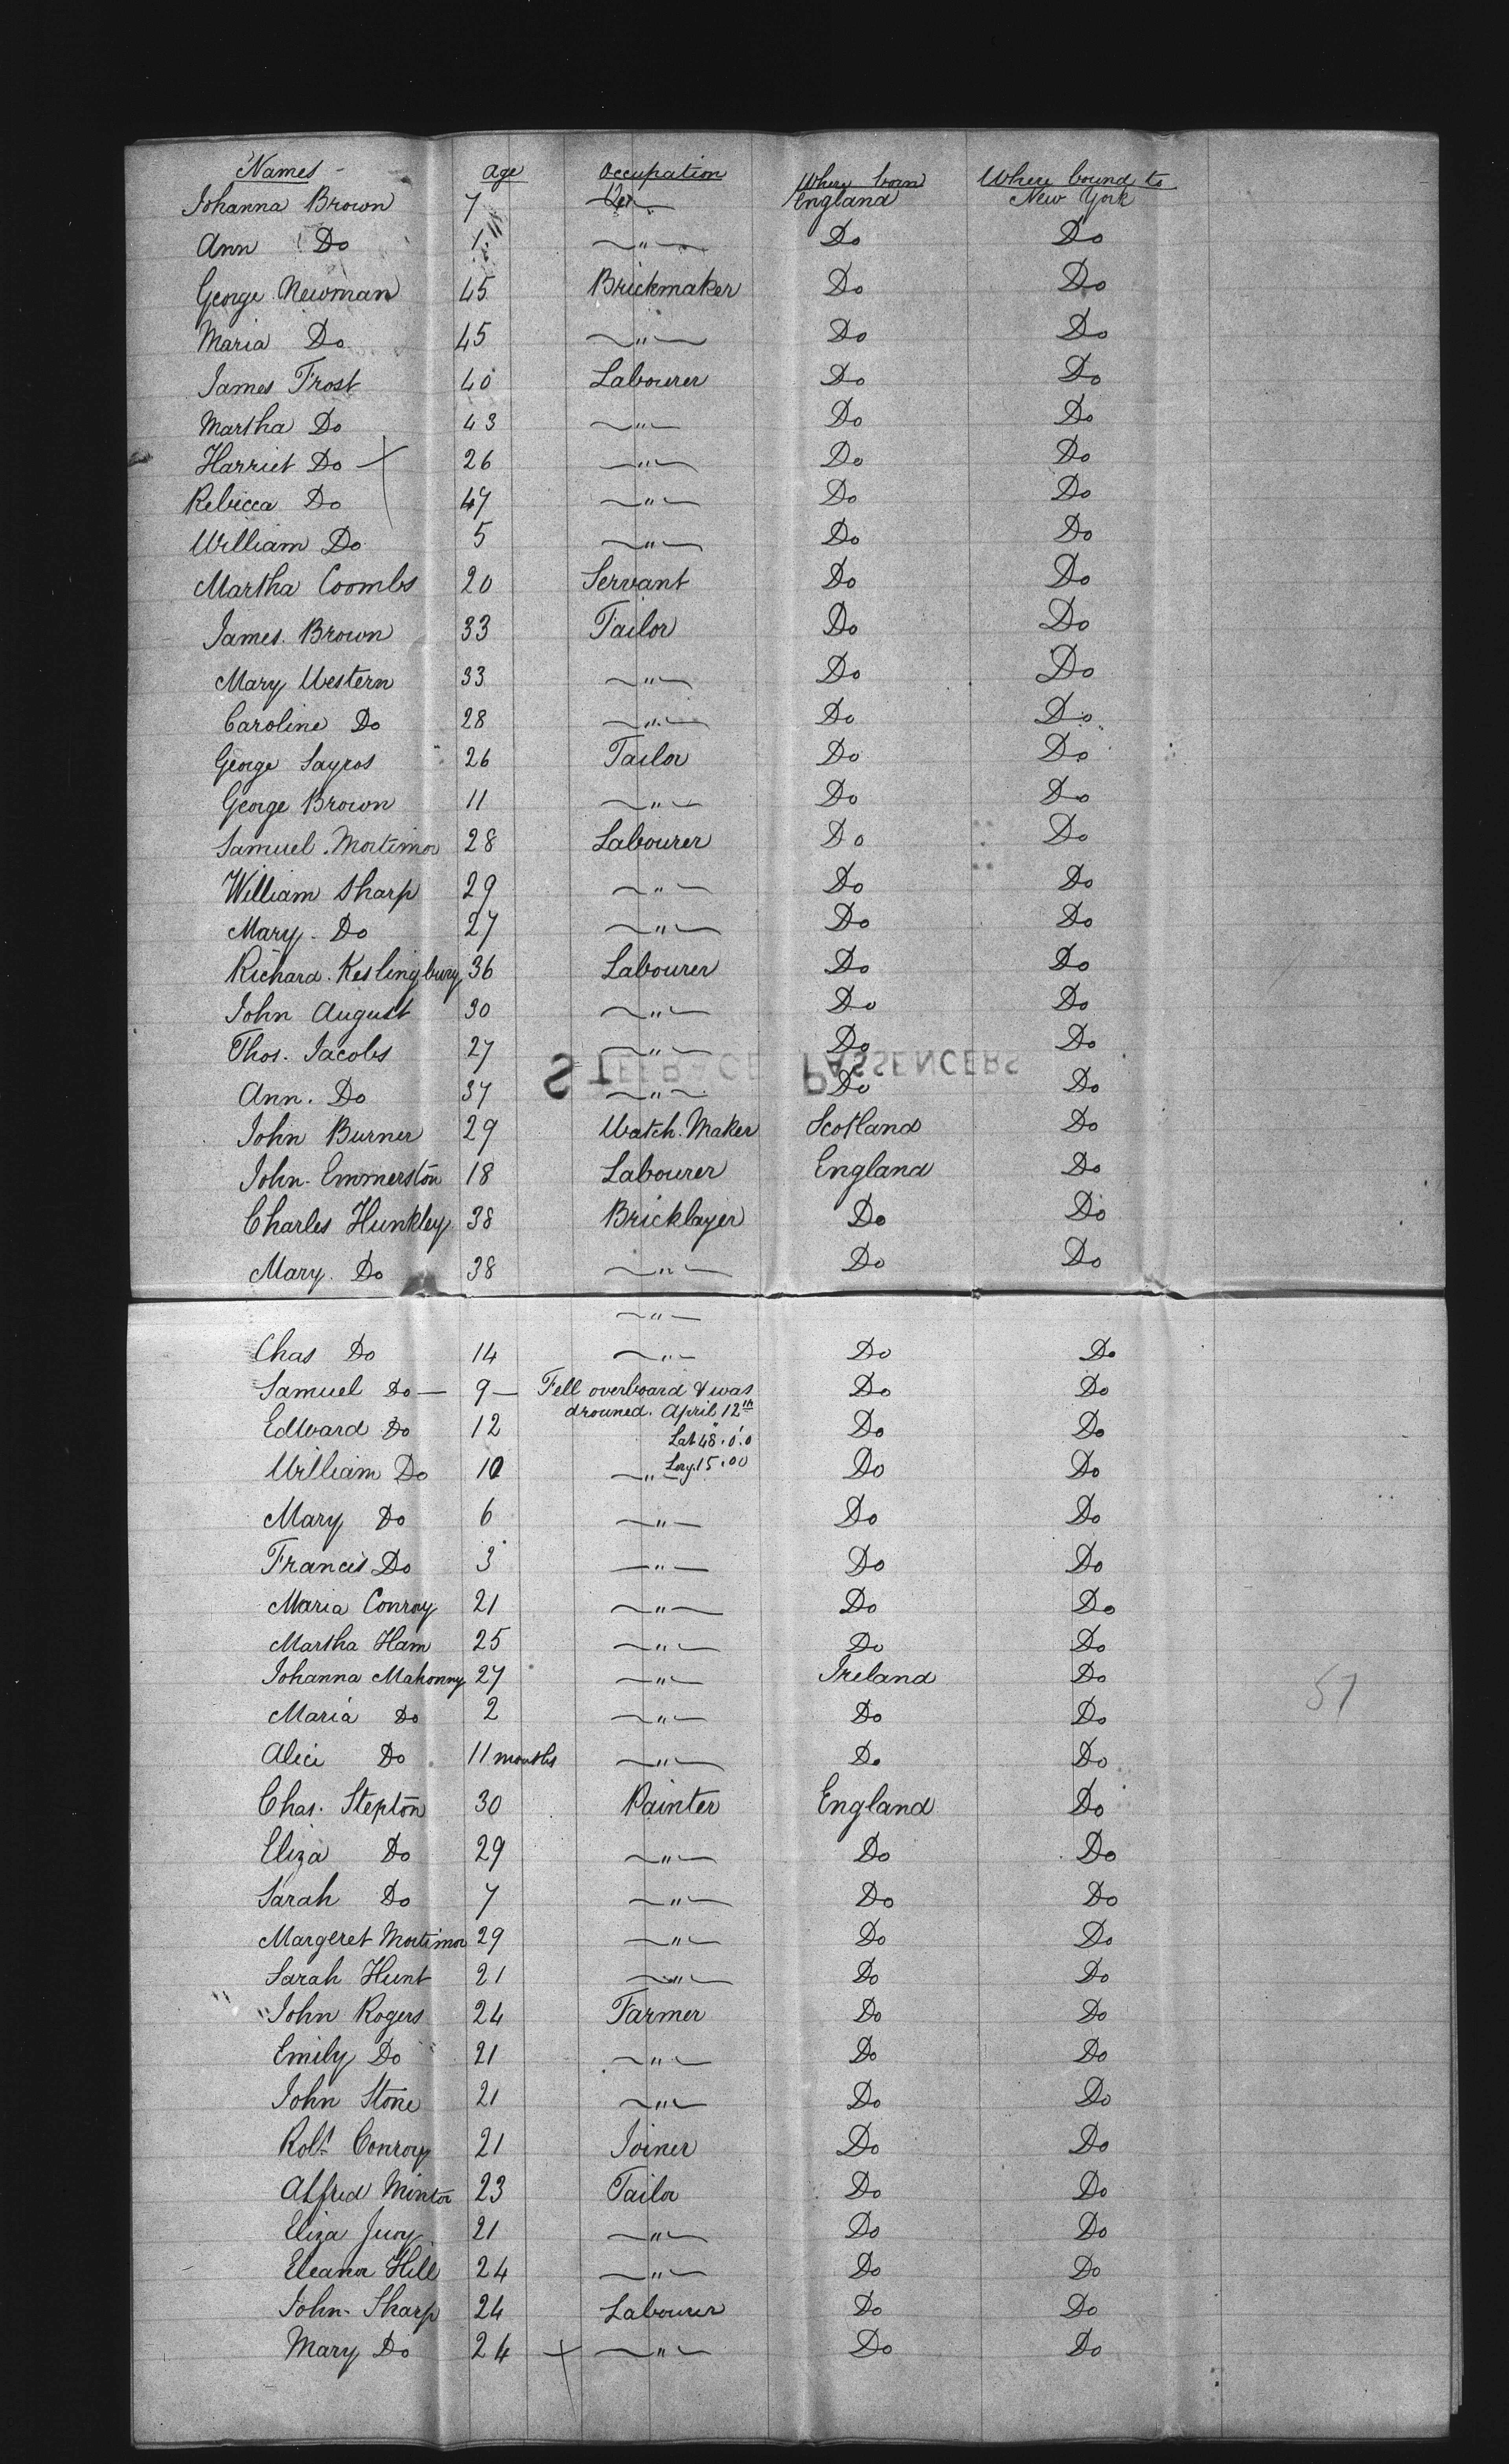 Names - age Occupation Where born Where bound to
Johanna Brown 7 Do England New York
Ann Do 1 " Do Do
George Newman 45 Brickmaker Do Do
Maria Do 45 " Do Do
James Frost 40 Labourer Do Do
Martha Do 43 " Do Do
Harriet Do 26 " Do Do
Rebicca Do 47 " Do Do
William Do 5 " Do Do
Martha Coombs 20 Servant Do Do
James Brown 33 Tailor Do Do
Mary Western 33 " Do Do
Caroline Do 28 " Do Do
George Sayros 26 Tailor Do Do
George Brown 11 " Do Do
Samuel Mortimor 28 Labourer Do Do
William Sharp 29 " Do Do
Mary Do 27 " Do Do
Richard Keslingbury 36 Labourer Do Do
John August 30 " Do Do
Thos. Jacobs 27 " Do Do
STEERAGE PASSENGERS
Ann. Do 37 " Do Do
John Burner 29 Watch. Maker Scotland Do
John Emmerston 18 Labourer England Do
Charles Hunkley 38 Bricklayer Do Do
Mary. Do 38 " Do Do
"
Chas Do 14 " Do Do
Samuel Do — 9 — Fell overboard & was Do Do
drouned. April 12th
Edward Do 12 Lat 48.0.0 Do Do
William Do 10 " Long. 15.00 Do Do
Mary Do 6 " Do Do
Francis Do 3 " Do Do
Maria Conroy 21 " Do Do
Martha Ham 25 " Do Do
Johanna Mahonny 27 " Ireland Do
Maria Do 2 " Do Do
Alice Do 11 months " Do Do
Chas. Stepton 30 Painter England Do
Eliza Do 29 " Do Do
Sarah Do 7 " Do Do
Margeret Mortimor 29 " Do Do
Sarah Hunt 21 " Do Do
John Rogers 24 Farmer Do Do
Emily Do 21 " Do Do
John Stone 21 " Do Do
Robt Conroy 21 Joiner Do Do
Alfred Mintor 23 Tailor Do Do
Eliza 21 " Do Do
Eleanor Hill 24 " Do Do
John Sharp 24 Labourer Do Do
Mary Do 24 " Do Do
51